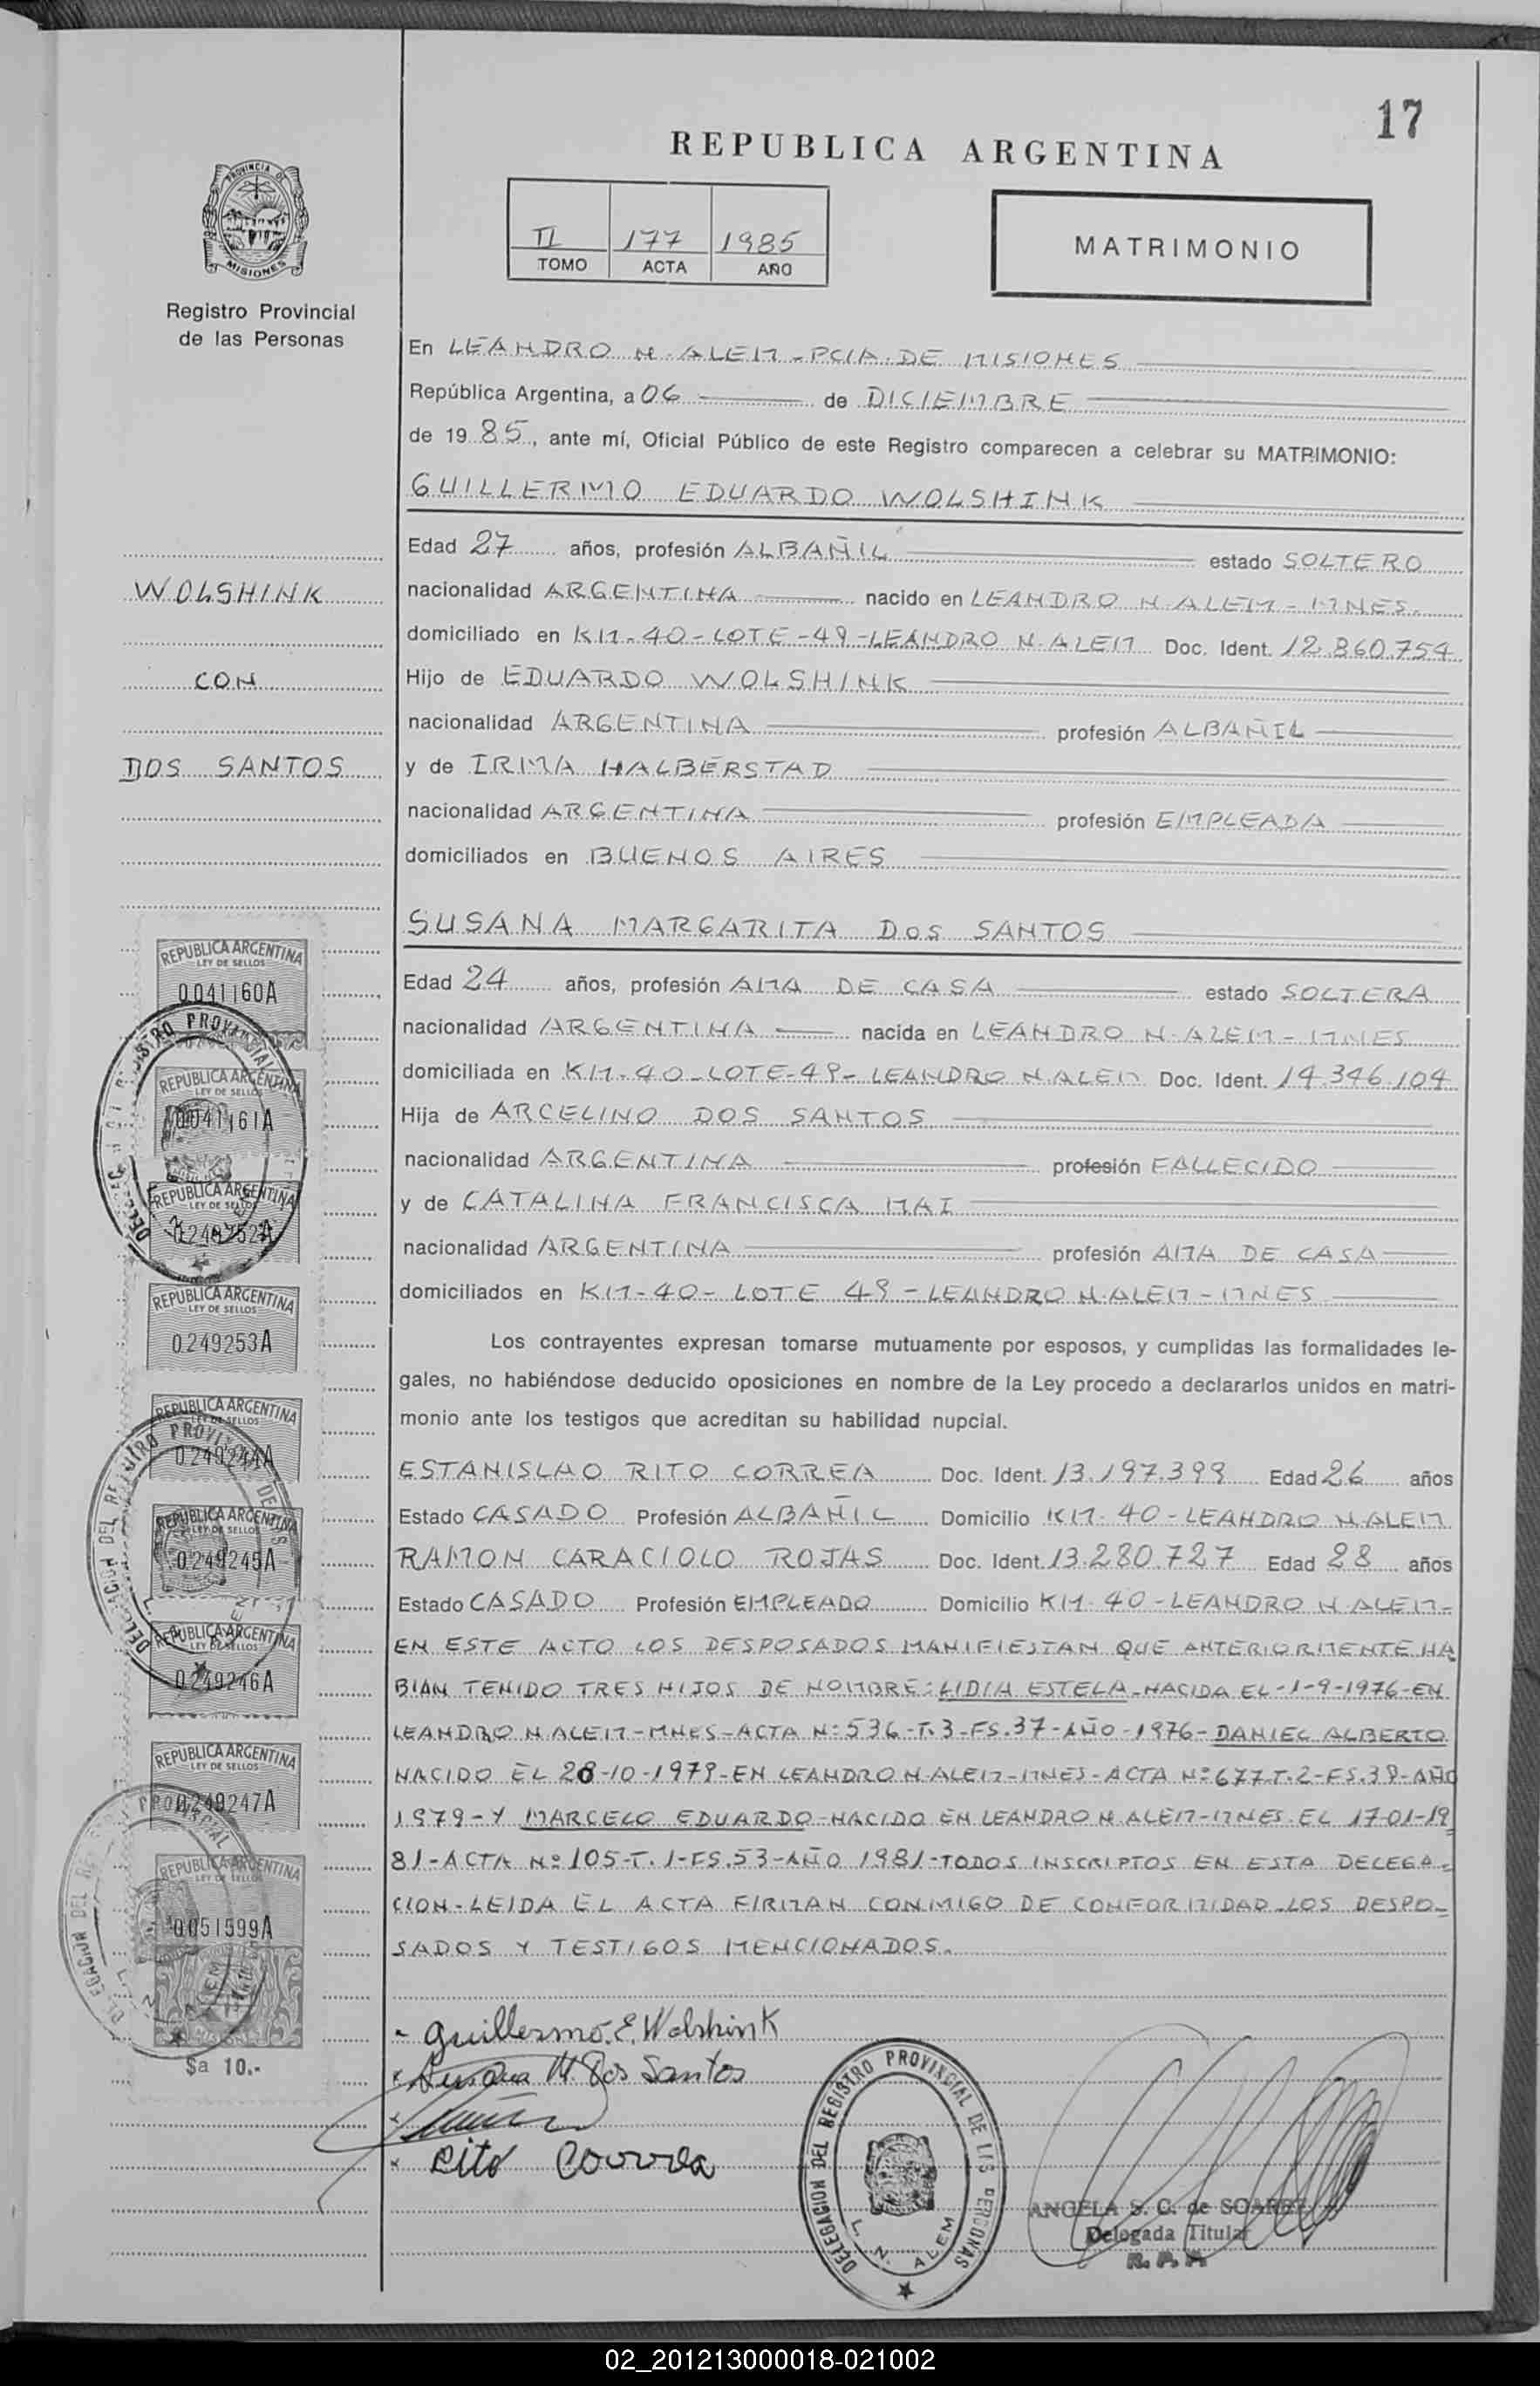 17
REPUBLICA ARGENTINA
PROVINCIA DE
MISIONES
177 1985
TOMO ACTA AÑO
MATRIMONIO
Registro Provincial
de las Personas
En LEANDRO N. ALEM - PCIA. DE MISIONES
República Argentina, a 06 de DICIEMBRE
de 1985, ante mí, Oficial Público de este Registro comparecen a celebrar su MATRIMONIO:
GUILLERMO EDUARDO WOLSHINK
Edad 27 años, profesión ALBAÑIL estado SOLTERO
WOLSHINK
nacionalidad ARGENTINA nacido en LEANDRO N. ALEM - MNES.
domiciliado en KM-40-LOTE-49-LEANDRO N. ALEM Doc. Ident. 12.860.754
CON
Hijo de EDUARDO WOLSHINK
nacionalidad ARGENTINA profesión ALBAÑIL
DOS SANTOS
y de IRMA HALBERSTAD
nacionalidad ARGENTINA profesión EMPLEADA
domiciliados en BUENOS AIRES
SUSANA MARGARITA DOS SANTOS
Edad 24 años, profesión AMA DE CASA estado SOLTERA
nacionalidad ARGENTINA nacida en LEANDRO N. ALEM - MNES
domiciliada en KM-40-LOTE-49-LEANDRO N. ALEM Doc. Ident. 14.346.104
Hija de ARCELINO DOS SANTOS
nacionalidad ARGENTINA profesión FALLECIDO
y de CATALINA FRANCISCA MAI
nacionalidad ARGENTINA profesión AMA DE CASA
domiciliados en KM-40- LOTE 49 - LEANDRO N. ALEM - MNES
Los contrayentes expresan tomarse mutuamente por esposos, y cumplidas las formalidades le-
gales, no habiéndose deducido oposiciones en nombre de la Ley procedo a declararlos unidos en matri-
monio ante los testigos que acreditan su habilidad nupcial.
ESTANISLAO RITO CORREA Doc. Ident. 13.197.399 Edad 26 años
Estado CASADO Profesión ALBAÑIL Domicilio KM-40-LEANDRO N. ALEM
RAMON CARACIOLO ROJAS Doc. Ident. 13.280.727 Edad 28 años
Estado CASADO Profesión EMPLEADO Domicilio KM 40-LEANDRO N. ALEM-
EN ESTE ACTO LOS DESPOSADOS MANIFIESTAN QUE ANTERIORMENTE HA
BIAN TENIDO TRES HIJOS DE NOMBRE: LIDIA ESTELA-NACIDA EL-1-9-1976-EN
LEANDRO N. ALEM-MNES-ACTA Nº536-T.3-FS.37-AÑO-1976-DANIEL ALBERTO
NACIDO EL 28-10-1979-EN LEANDRO N. ALEM-MNES-ACTA Nº677.T-2-FS.39-AÑO
1979-Y MARCELO EDUARDO-NACIDO EN LEANDRO N. ALEM-MNES. EL 17-01-19
81-ACTA Nº105-T.1-FS.53-AÑO 1981-TODOS INSCRIPTOS EN ESTA DELEGA-
CION-LEIDA EL ACTA FIRMAN CONMIGO DE CONFORMIDAD-LOS DESPO-
SADOS Y TESTIGOS MENCIONADOS.
REPUBLICA ARGENTINA
LEY DE SELLOS
0041160A
REPUBLICA ARGENTINA
LEY DE SELLOS
0041161A
REPUBLICA ARGENTINA
LEY DE SELLOS
REPUBLICA ARGENTINA
LEY DE SELLOS
0249253A
REPUBLICA ARGENTINA
LEY DE SELLOS
0249244A
REPUBLICA ARGENTINA
LEY DE SELLOS
0249245A
REPUBLICA ARGENTINA
LEY DE SELLOS
0249246A
REPUBLICA ARGENTINA
LEY DE SELLOS
0249247A
REPUBLICA ARGENTINA
LEY DE SELLOS
0051599A
$a 10.-
Guillermo. E. Wolshink
Susana M. Dos Santos
Rito Correa
DELEGACION DEL REGISTRO PROVINCIAL DE LAS PERSONAS
L. N. ALEM
ANGELA S. C. de SOAREZ
Delegada Titular
R. P. P.
02_201213000018-021002